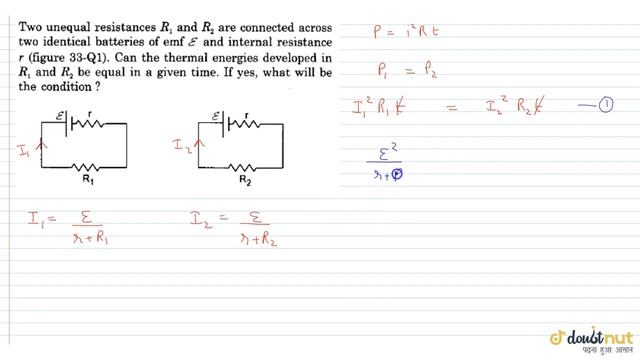 Two unequal resistances R₁ and R₂ are connected across
two identical batteries of emf ℰ and internal resistance
r (figure 33-Q1). Can the thermal energies developed in
R₁ and R₂ be equal in a given time. If yes, what will be
the condition ?
P = i²Rt
P₁ = P₂
I₁² R₁ t = I₂² R₂ t — ①
ε²
r+
ℰ r
I₁
R₁
ℰ r
I₂
R₂
I₁ = ε / r+R₁
I₂ = ε / r+R₂
doubtnut
पढ़ना हुआ आसान